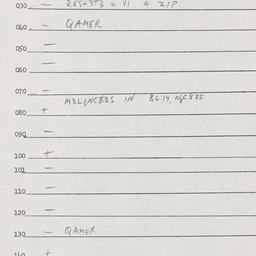 030 —
040 — QAMER
050 —
060 —
070 —
080 + M3LJNC835 IN BL14,NC835
090 —
100 +
101 —
110 —
120 —
130 — QAMER
140 +